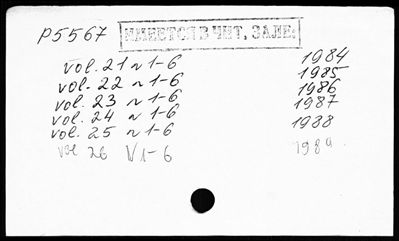 p5567
ИМЕЕТСЯ В ЧИТ. ЗАЛЕ.
vol. 21 n 1-6 1984
vol. 22 n 1-6 1985
vol. 23 n 1-6 1986
vol. 24 n 1-6 1987
vol. 25 n 1-6 1988
vol 26 N 1-6 1989